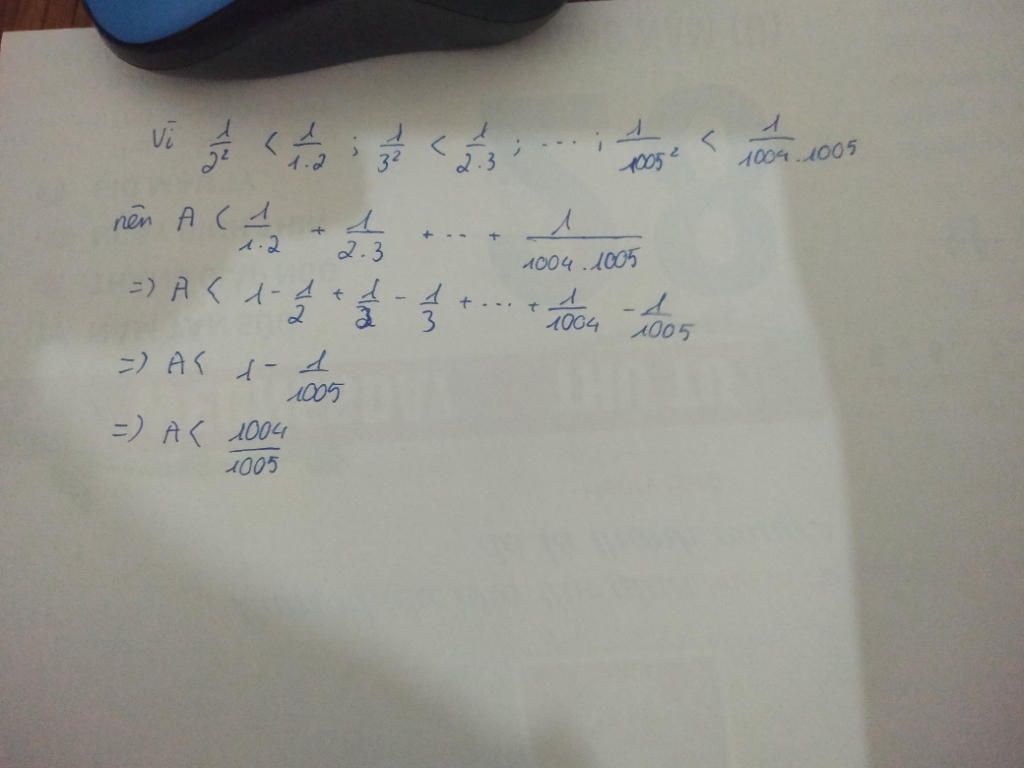 Vì 1/2² < 1/1.2 ; 1/3² < 1/2.3 ; ... ; 1/1005² < 1/1004.1005
nên A < 1/1.2 + 1/2.3 + ... + 1/1004.1005
=) A < 1 - 1/2 + 1/2 - 1/3 + ... + 1/1004 - 1/1005
=) A < 1 - 1/1005
=) A < 1004/1005